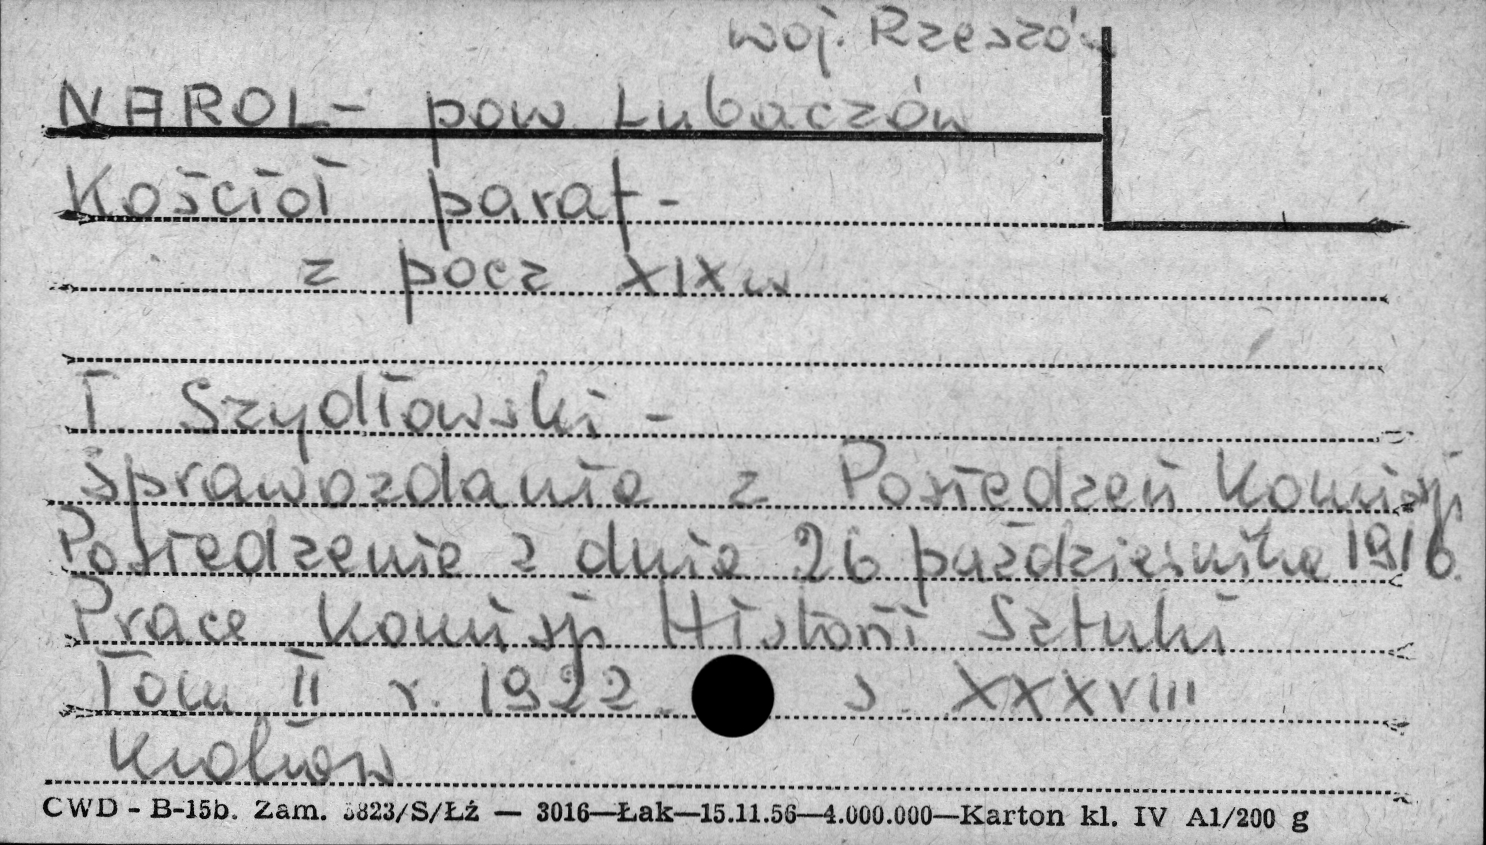 woj. Rzeszów
NAROL - pow Lubaczów
Kościół paraf -
z pocz XIX w
T. Szydłowski -
Sprawozdanie z Posiedzeń Komisji
Posiedzenie z dnia 26 października 1916.
Prace Komisji Historii Sztuki
Tom II r. 1922. s. XXXVIII
Kraków
CWD - B-15b. Zam. 5823/S/Łź — 3016—Łak—15.11.56—4.000.000—Karton kl. IV A1/200 g